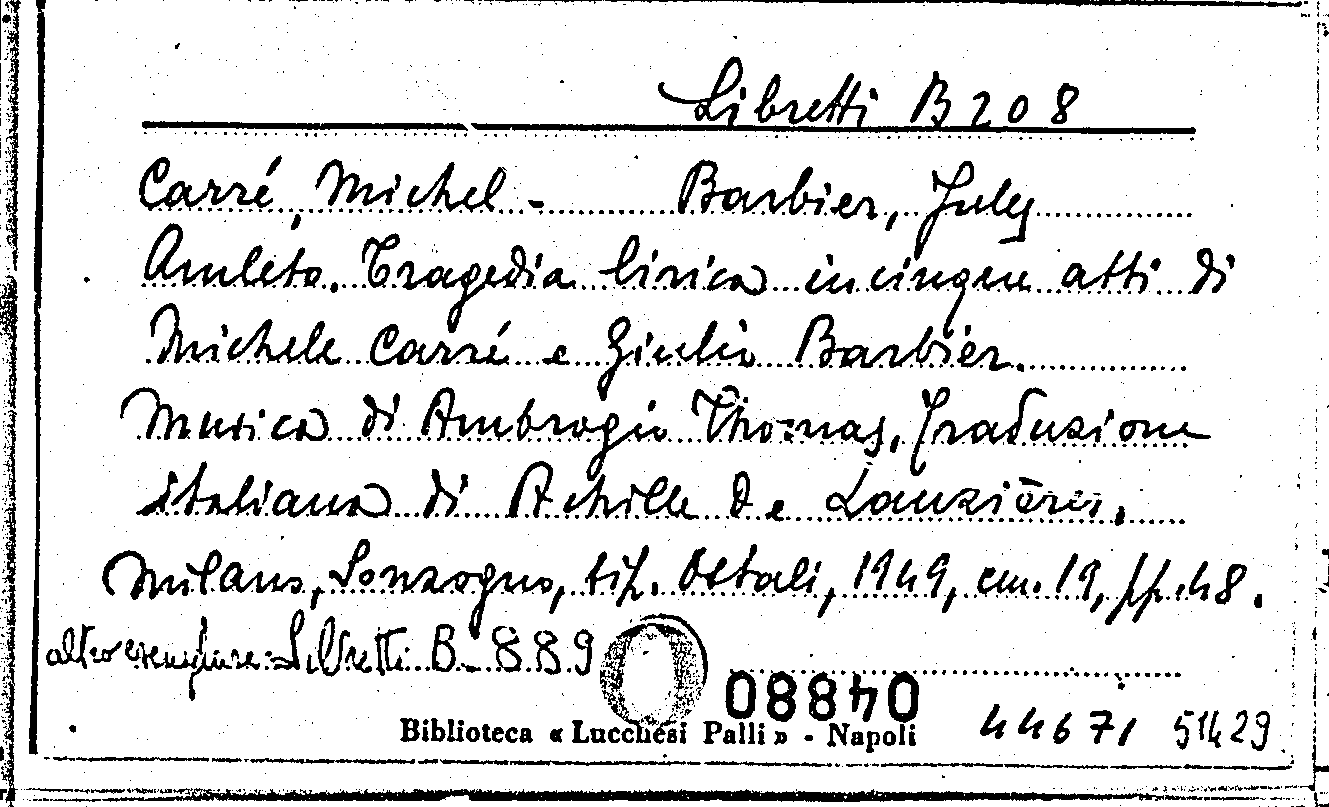 Libretti B 208
Carré, Michel - Barbier, Jules
Amleto. Tragedia lirica in cinque atti di
Michele Carré e Giulio Barbier.
Musica di Ambrogio Thomas. Traduzione
italiana di Achille De Lauzières.
Milano, Sonzogno, tip. Ostali, 1949, cm. 19, pp. 48.
altro esemplare: Libretti B- 889
04880
Biblioteca « Lucchesi Palli » - Napoli 44671 51429